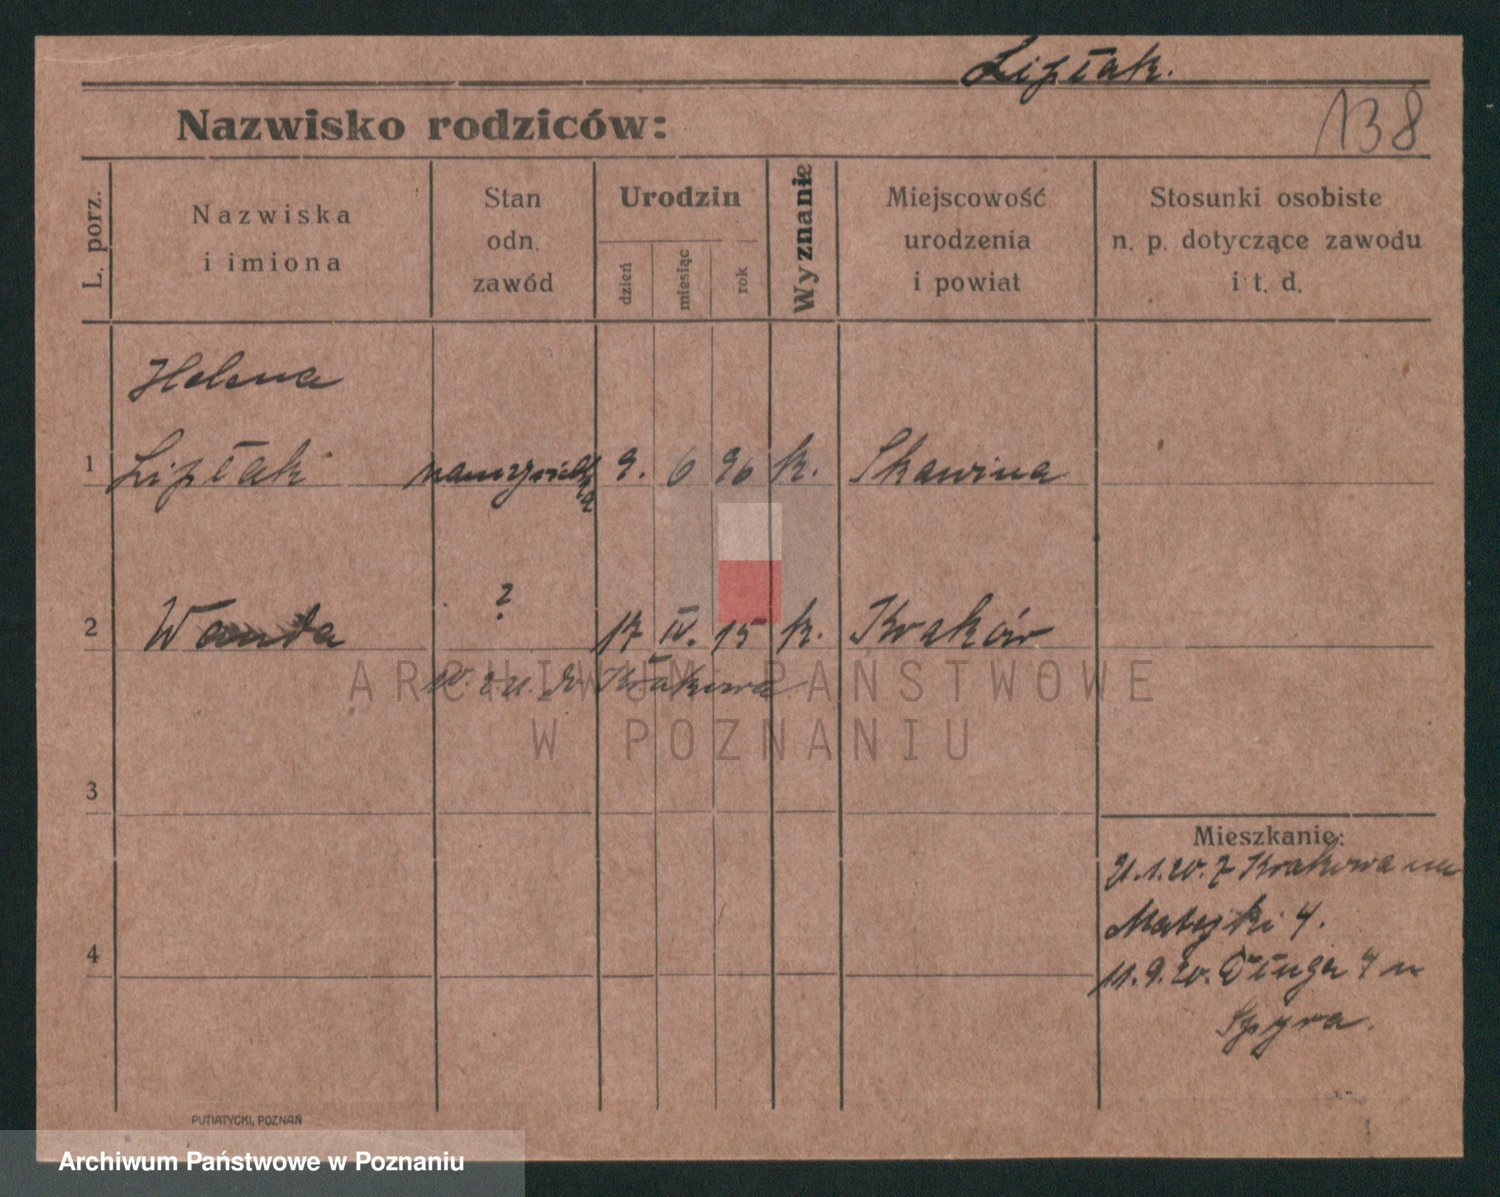 Lipłak.
138
Nazwisko rodziców:
L. porz.
Nazwiska
i imiona
Stan
odn.
zawód
Urodzin
dzień
miesiąc
rok
Wyznanie
Miejscowość
urodzenia
i powiat
Stosunki osobiste
n. p. dotyczące zawodu
i t. d.
Helena
1 Lipłak nauczycielka 9. 6 96 k. Skawina
?
2 Wanda 17 IV. 15 k. Kraków
do Krakowa
ARCHIWUM PAŃSTWOWE
W POZNANIU
3
Mieszkanie:
21.1.20. z Krakowa
Matejki 4.
4
11.9.20. Długa 4
Spyra.
PUTIATYCKI, POZNAŃ
Archiwum Państwowe w Poznaniu